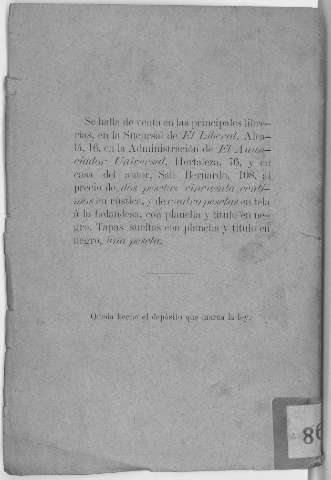 Se halla de venta en las principales libre-
rías, en la Sucursal de El Liberal, Alca-
lá, 16, en la Administración de El Anun-
ciador Universal, Hortaleza, 76, y en
casa del autor, San Bernardo, 108, al
precio de dos pesetas cincuenta cénti-
mos en rústica, y de cuatro pesetas en tela
á la holandesa, con plancha y título en ne-
gro. Tapas sueltas con plancha y título en
negro, una peseta.
Queda hecho el depósito que marca la ley.
86